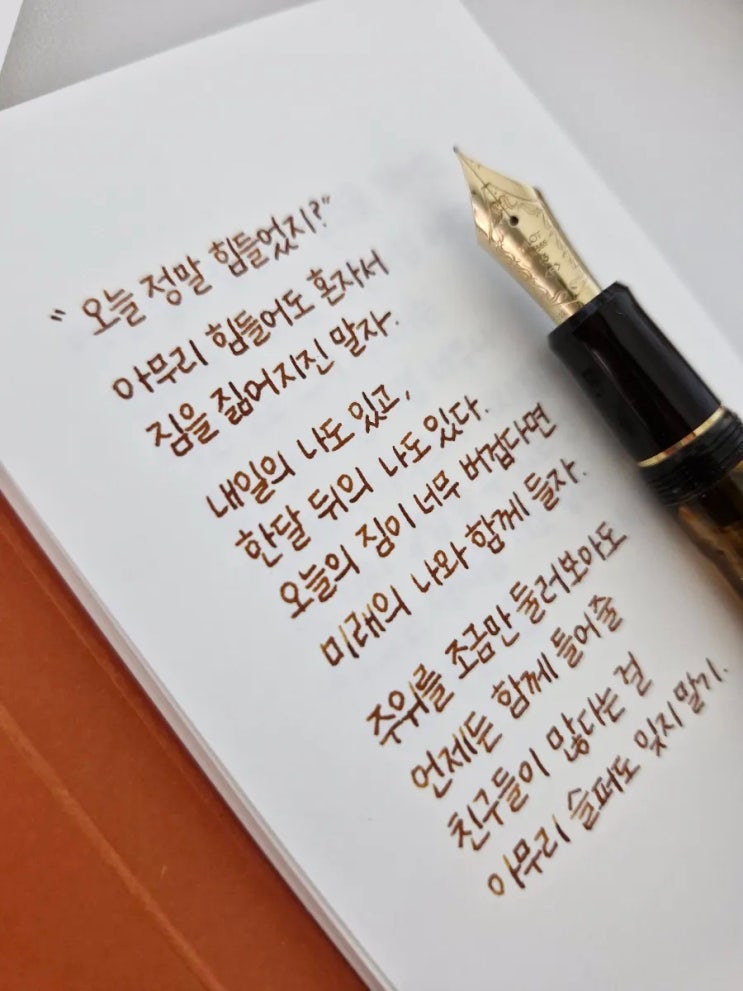 "오늘 정말 힘들었지?"
아무리 힘들어도 혼자서
짐을 짊어지진 말자.
내일의 나도 있고,
한달 뒤의 나도 있다.
오늘의 짐이 너무 버겁다면
미래의 나와 함께 들자.
주위를 조금만 둘러보아도
언제든 함께 들어줄
친구들이 많다는 걸
아무리 슬퍼도 잊지 말기.